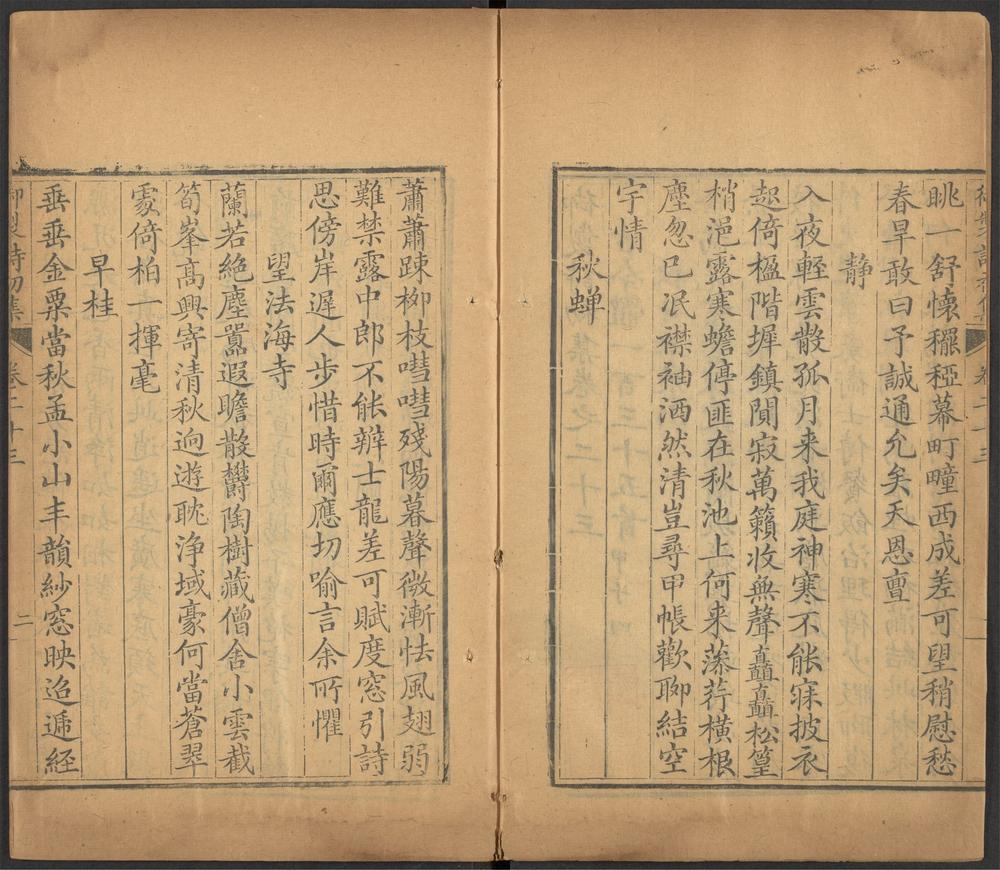 眺一舒懷䆉稏幕町疃西成差可望稍慰愁
春旱敢曰予誠通允矣天恩亶
静
入夜輕雲散孤月来我庭神寒不能寐披衣
起倚楹階墀鎮闃寂萬籟收無聲矗矗松篁
梢浥露寒蟾停匪在秋池上何来藻荇橫根
塵忽已泯襟袖洒然清豈尋甲帳歡聊結空
宇情
秋蟬
蕭蕭踈柳枝嘒嘒殘陽暮聲微漸怯風翅弱
難禁露中郎不能辦士龍差可賦度窓引詩
思傍岸遲人步惜時爾應切喻言余所懼
望法海寺
蘭若絶塵囂遐瞻散欝陶樹藏僧舍小雲截
筍峯髙興寄清秋逈遊耽浄域豪何當蒼翠
䨇倚柏一揮毫
早桂
垂垂金粟當秋孟小山丰韻紗窓映迨遞經
御製詩初集 卷二十三 二